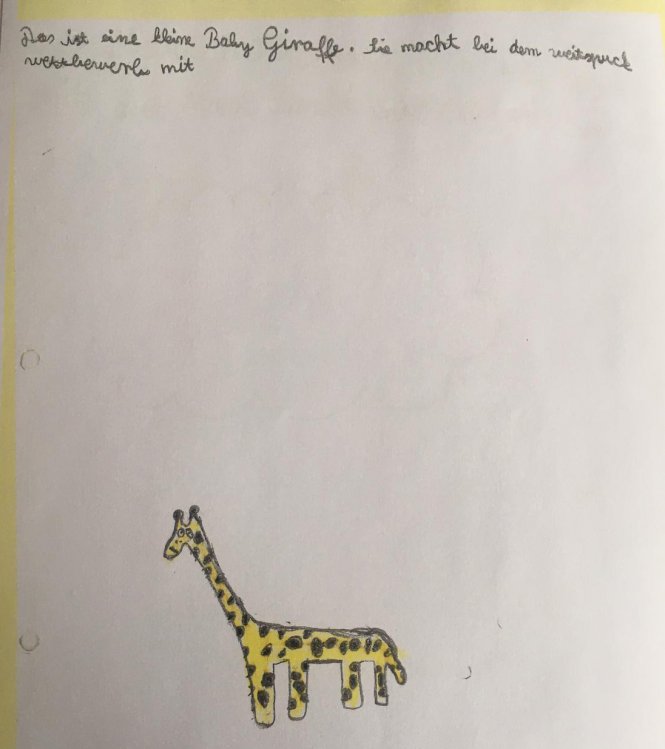 Das ist eine kleine Baby Giraffe. Sie macht bei dem weitspuck
wettbewerb mit